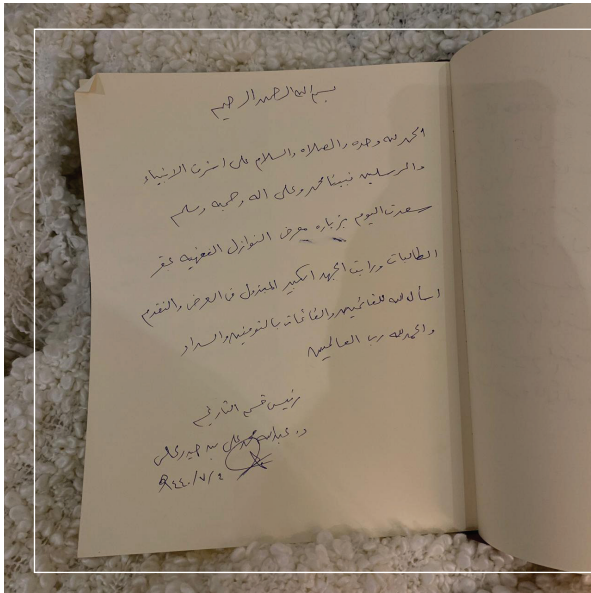 بسم الله الرحمن الرحيم
الحمد لله وحده والصلاه والسلام على اشرف الانبياء
والمرسلين نبينا محمد وعلى اله وصحبه وسلم
سعدت اليوم بزياره معرض النوازل الفقهيه بمقر
الطالبات ورايت الجهد الكبير المبذول في العرض والتقدم
اسأل الله للقائمين والقائمات بالتوفيق والسداد
والحمد لله رب العالمين
رئيس قسم التاريخ
د. عبدالله محمد علي